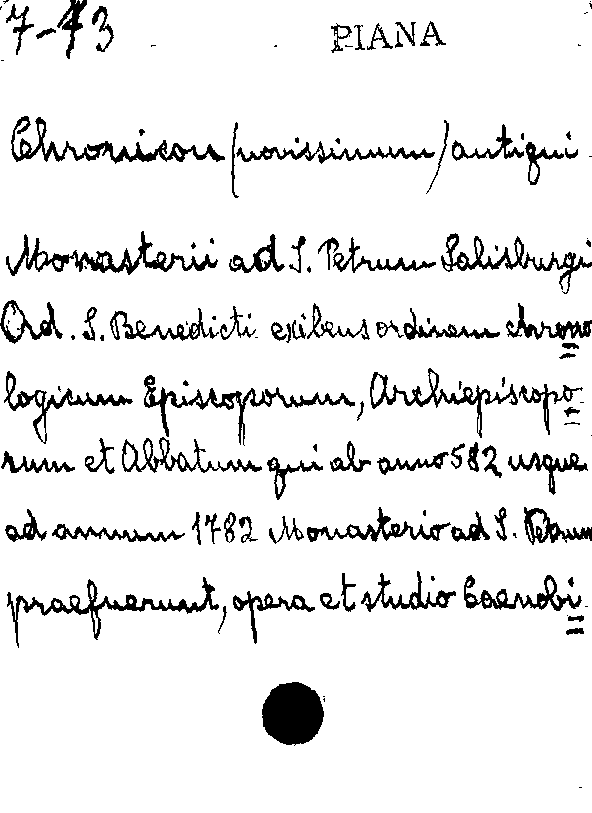 7-13 PIANA
Chronicon (novissimum) antiqui
Monasterii ad S. Petrum Salisburgi
Ord. S. Benedicti exibens ordinem chrono=
logicum Episcoporum, Archiepiscopo=
rum et Abbatum qui ab anno 582 usque
ad annum 1782 Monasterio ad S. Petrum
praefuerunt, opera et studio Coenobi=